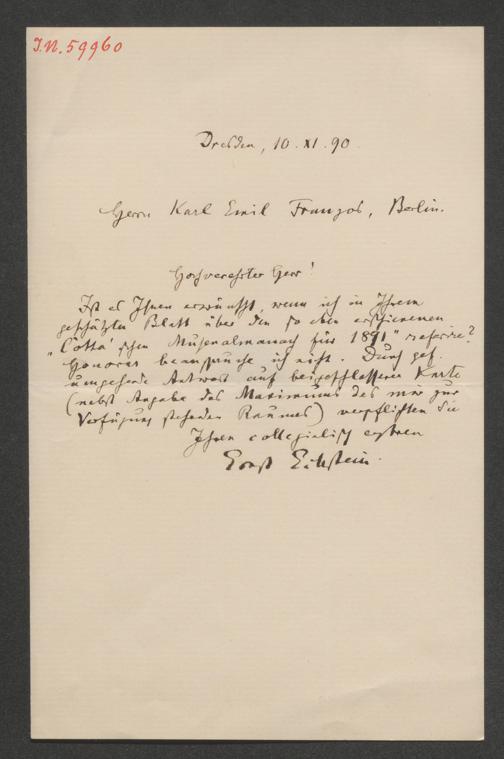 J.N. 59960
Dresden, 10. XI. 90.
Herrn Karl Emil Franzos, Berlin.
Hochverehrter Herr!
Ist es Ihnen erwünscht, wenn ich in Ihrem
geschätzten Blatt über den so eben erschienenen
„Cotta'schen Musenalmanach für 1891" referire?
Honorar beanspruche ich nicht. Durch gef.
umgehende Antwort auf beigeschlossener Karte
(nebst Angabe des Maximums des mir zur
Verfügung stehenden Raumes) verpflichten Sie
Ihren collegialisch ergbnen
Ernst Eckstein.